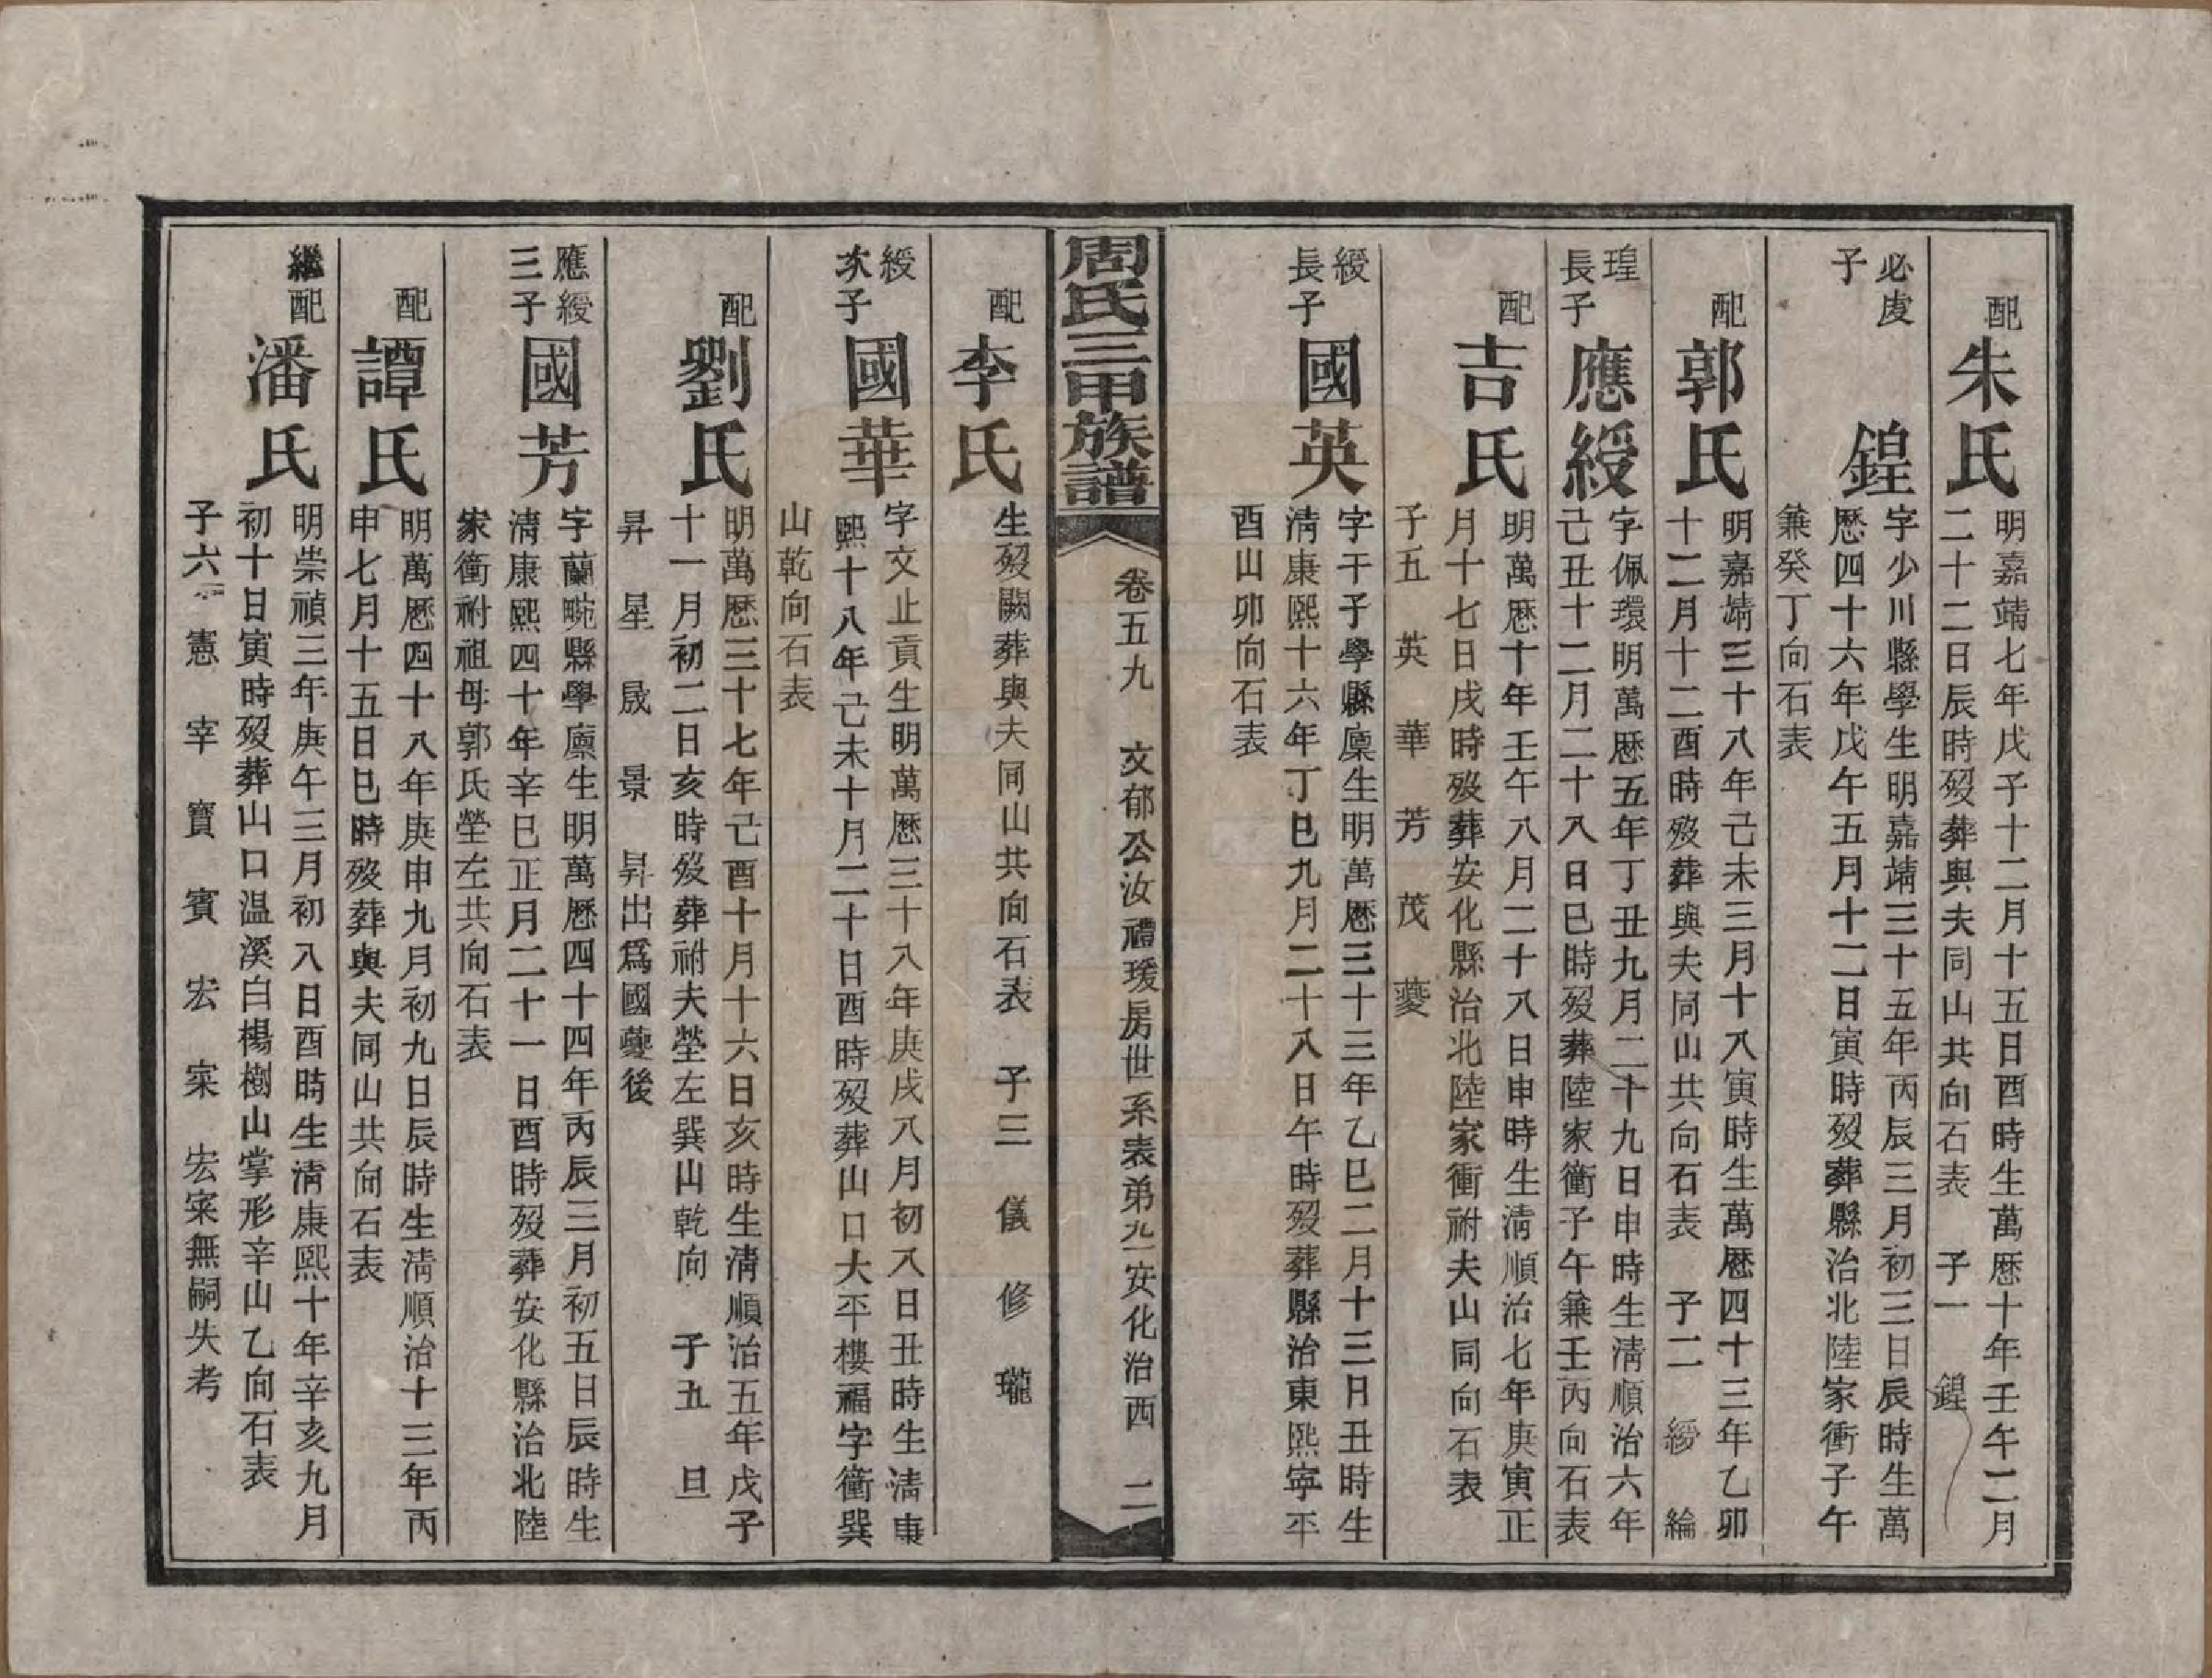 配朱氏
明嘉靖七年戊子十二月十五日酉時生萬歷十年壬午二月
二十二日辰時歿葬與夫同山共向石表　子一　鍠
必虔子　鍠
字少川縣學生明嘉靖三十五年丙辰三月初三日辰時生萬
歷四十六年戊午五月十二日寅時歿葬縣治北陸家衝子午
兼癸丁向石表
配郭氏
明嘉靖三十八年己未三月十八寅時生萬歷四十三年乙卯
十二月十二酉時歿葬與夫同山共向石表　子二　綬　綸
瑝長子應綬
字佩環明萬歷五年丁丑九月二十九日申時生淸順治六年
己丑十二月二十八日巳時歿葬陸家衝子午兼壬丙向石表
配吉氏
明萬歷十年壬午八月二十八日申時生淸順治七年庚寅正
月十七日戌時歿葬安化縣治北陸家衝祔夫山同向石表
子五　英　華　芳　茂　蘷
綬長子國英
字干子學縣廩生明萬歷三十三年乙巳二月十三日丑時生
淸康熙十六年丁巳九月二十八日午時歿葬縣治東熙寧平
酉山卯向石表
周氏三甲族譜
卷五九　文郁公汝禮瑗房世系表弟九一安化治西　二
配李氏
生歿闕葬與夫同山共向石表　子三　儀　修　瓏
綬次子國華
字文止貢生明萬歷三十八年庚戌八月初八日丑時生淸康
熙十八年己未十月二十日酉時歿葬山口大平樓福字衝巽
山乾向石表
配劉氏
明萬歷三十七年己酉十月十六日亥時生淸順治五年戊子
十一月初二日亥時歿葬祔夫塋左巽山乾向　子五　旦
昇　星　晟　景　昇出爲國蘷後
應綬三子國芳
字蘭畹縣學廩生明萬歷四十四年丙辰三月初五日辰時生
淸康熙四十年辛巳正月二十一日酉時歿葬安化縣治北陸
家衝祔祖母郭氏塋左共向石表
配譚氏
明萬歷四十八年庚申九月初九日辰時生淸順治十三年丙
申七月十五日巳時歿葬與夫同山共向石表
繼配潘氏
明崇禎三年庚午三月初八日酉時生淸康熙十年辛亥九月
初十日寅時歿葬山口温溪白楊樹山掌形辛山乙向石表
子六　憲　宰　寶　賓　宏　寀　宏寀無嗣失考